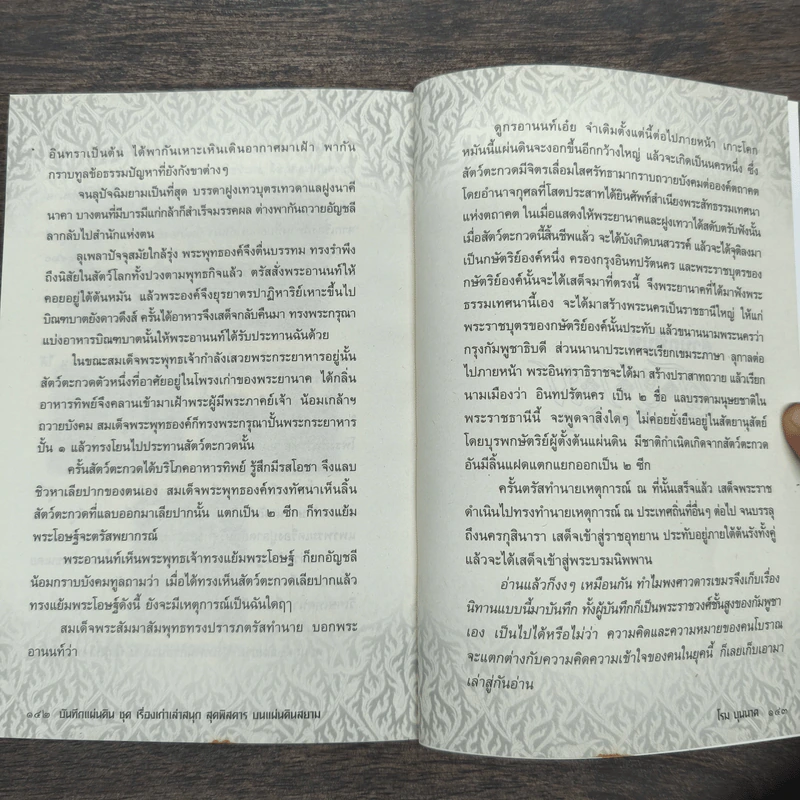 อินทราเป็นต้น ได้พากันเหาะเหินเดินอากาศมาเฝ้า พากัน
กราบทูลข้อธรรมปัญหาที่ยังกังขาต่างๆ
จนลุปัจฉิมยามเป็นที่สุด บรรดาฝูงเทวบุตรเทวดาแลฝูงนาคี
นาคา บางตนที่มีบารมีแก่กล้าก็สำเร็จมรรคผล ต่างพากันถวายอัญชลี
ลากลับไปสำนักแห่งตน
ลุเพลาปัจจุสมัยใกล้รุ่ง พระพุทธองค์จึงตื่นบรรทม ทรงรำพึง
ถึงนิสัยในสัตว์โลกทั้งปวงตามพุทธกิจแล้ว ตรัสสั่งพระอานนท์ให้
คอยอยู่ใต้ต้นหมัน แล้วพระองค์จึงยุรยาตรปาฏิหาริย์เหาะขึ้นไป
บิณฑบาตยังดาวดึงส์ ครั้นได้อาหารจึงเสด็จกลับคืนมา ทรงพระกรุณา
แบ่งอาหารบิณฑบาตนั้นให้พระอานนท์ได้รับประทานฉันด้วย
ในขณะสมเด็จพระพุทธเจ้ากำลังเสวยพระกระยาหารอยู่นั้น
สัตว์ตะกวดตัวหนึ่งที่อาศัยอยู่ในโพรงเก่าของพระยานาค ได้กลิ่น
อาหารทิพย์จึงคลานเข้ามาเฝ้าพระผู้มีพระภาคย์เจ้า น้อมเกล้าฯ
ถวายบังคม สมเด็จพระพุทธองค์ก็ทรงพระกรุณาปั้นพระกระยาหาร
ปั้น ๑ แล้วทรงโยนไปประทานสัตว์ตะกวดนั้น
ครั้นสัตว์ตะกวดได้บริโภคอาหารทิพย์ รู้สึกมีรสโอชา จึงแลบ
ชิวหาเลียปากของตนเอง สมเด็จพระพุทธองค์ทรงทัศนาเห็นลิ้น
สัตว์ตะกวดที่แลบออกมาเลียปากนั้น แตกเป็น ๒ ซีก ก็ทรงแย้ม
พระโอษฐ์จะตรัสพยากรณ์
พระอานนท์เห็นพระพุทธเจ้าทรงแย้มพระโอษฐ์ ก็ยกอัญชลี
น้อมกราบบังคมทูลถามว่า เมื่อได้ทรงเห็นสัตว์ตะกวดเลียปากแล้ว
ทรงแย้มพระโอษฐ์ดังนี้ ยังจะมีเหตุการณ์เป็นฉันใดฤๅ
สมเด็จพระสัมมาสัมพุทธทรงปรารภตรัสทำนาย บอกพระ
อานนท์ว่า
๑๔๒ บันทึกแผ่นดิน ชุด เรื่องเก่าเล่าสนุก สุดพิสดาร บนแผ่นดินสยาม
ดูกรอานนท์เอ๋ย จำเดิมตั้งแต่นี้ต่อไปภายหน้า เกาะโคก
หมันนี้แผ่นดินจะงอกขึ้นอีกกว้างใหญ่ แล้วจะเกิดเป็นนครหนึ่ง ซึ่ง
สัตว์ตะกวดมีจิตรเลื่อมใสศรัทธามากราบถวายบังคมต่อองค์ตถาคต
โดยอำนาจกุศลที่โสตประสาทได้ยินศัพท์สำเนียงพระสัทธรรมเทศนา
แห่งตถาคต ในเมื่อแสดงให้พระยานาคและฝูงเทวาได้สดับตรับฟังนั้น
เมื่อสัตว์ตะกวดนี้สิ้นชีพแล้ว จะได้บังเกิดบนสวรรค์ แล้วจะได้จุติลงมา
เป็นกษัตริย์องค์หนึ่ง ครองกรุงอินทปรัตนคร และพระราชบุตรของ
กษัตริย์องค์นั้นจะได้เสด็จมาที่ตรงนี้ จึงพระยานาคที่ได้มาฟังพระ
ธรรมเทศนานี้เอง จะได้มาสร้างพระนครเป็นราชธานีใหญ่ ให้แก่
พระราชบุตรของกษัตริย์องค์นั้นประทับ แล้วขนานนามพระนครว่า
กรุงกัมพูชาธิบดี ส่วนนานาประเทศจะเรียกเขมระภาษา ลุกาลต่อ
ไปภายหน้า พระอินทราธิราชจะได้มา สร้างปราสาทถวาย แล้วเรียก
นามเมืองว่า อินทปรัตนคร เป็น ๒ ชื่อ แลบรรดามนุษยชาติใน
พระราชธานีนี้ จะพูดจาสิ่งใดๆ ไม่ค่อยยั่งยืนอยู่ในสัตยานุสัตย์
โดยบุรพกษัตริย์ผู้ตั้งต้นแผ่นดิน มีชาติกำเนิดเกิดจากสัตว์ตะกวด
อันมีลิ้นแฝดแตกแยกออกเป็น ๒ ซีก
ครั้นตรัสทำนายเหตุการณ์ ณ ที่นั้นเสร็จแล้ว เสด็จพระราช
ดำเนินไปทรงทำนายเหตุการณ์ ณ ประเทศถิ่นที่อื่นๆ ต่อไป จนบรรลุ
ถึงนครกุสินารา เสด็จเข้าสู่ราชอุทยาน ประทับอยู่ภายใต้ต้นรังทั้งคู่
แล้วจะได้เสด็จเข้าสู่พระบรมนิพพาน
อ่านแล้วก็งงๆ เหมือนกัน ทำไมพงศาวดารเขมรจึงเก็บเรื่อง
นิทานแบบนี้มาบันทึก ทั้งผู้บันทึกก็เป็นพระราชวงศ์ชั้นสูงของกัมพูชา
เอง เป็นไปได้หรือไม่ว่า ความคิดและความหมายของคนโบราณ
จะแตกต่างกับความคิดความเข้าใจของคนในยุคนี้ ก็เลยเก็บเอามา
เล่าสู่กันอ่าน
โรม บุนนาค ๑๔๓